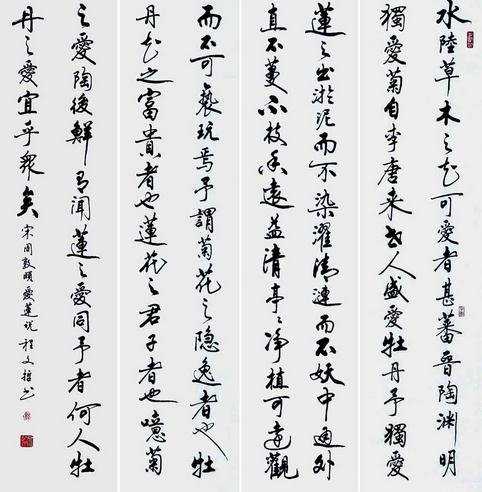 水陸草木之花可愛者甚蕃晉陶淵明
獨愛菊自李唐来世人盛愛牡丹予獨愛
蓮之出淤泥而不染濯清漣而不妖中通外
直不蔓不枝香遠益清亭〻净植可遠觀
而不可褻玩焉予謂菊花之隐逸者也牡
丹花之富貴者也蓮花之君子者也噫菊
之愛陶後鮮有聞蓮之愛同予者何人牡
丹之愛宜乎衆矣
宋周敦頤愛蓮说